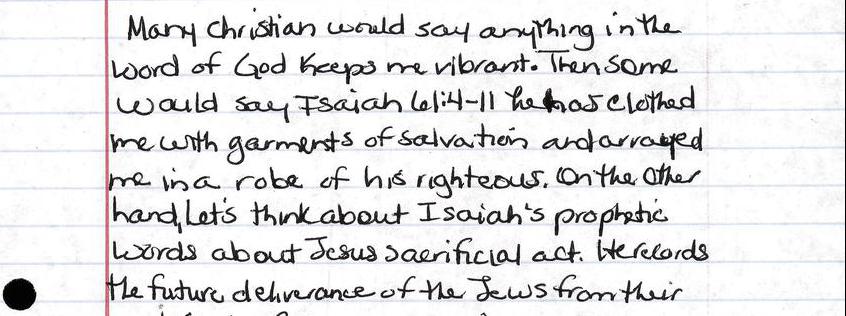 Many Christian would say anything in the
word of God keeps me vibrant. Then some
would say Isaiah 61:4-11 he has clothed
me with garments of salvation and arrayed
me in a robe of his righteous. On the other
hand, Let's think about Isaiah's prophetic
words about Jesus sacrificial act. He records
the future deliverance of the Jews from their